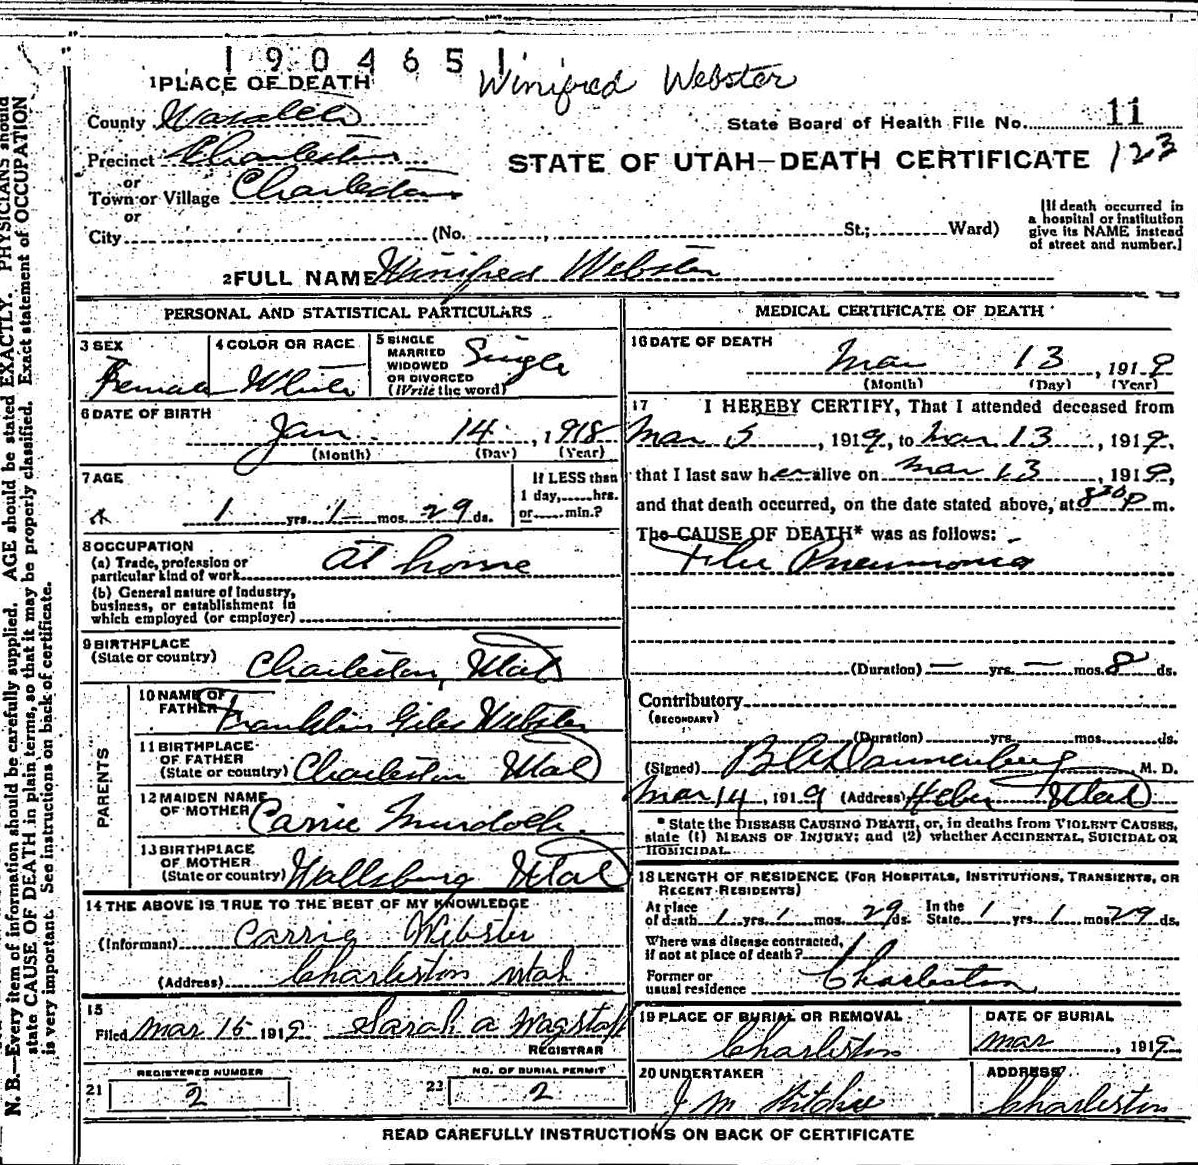 1904651
Winifred Webster
1 PLACE OF DEATH
County Wasatch
State Board of Health File No. 11
Precinct Charleston
STATE OF UTAH—DEATH CERTIFICATE 123
or
Town or Village Charleston
or
City (No. , St.; Ward)
[If death occurred in a hospital or institution give its NAME instead of street and number.]
2 FULL NAME Winifred Webster
PERSONAL AND STATISTICAL PARTICULARS
3 SEX Female
4 COLOR OR RACE White
5 SINGLE MARRIED WIDOWED OR DIVORCED (Write the word) Single
6 DATE OF BIRTH
Jan 14, 1918
(Month) (Day) (Year)
7 AGE
1 yrs. 1 mos. 29 ds.
If LESS than
1 day, hrs.
or min.?
8 OCCUPATION
(a) Trade, profession or
particular kind of work At home
(b) General nature of Industry,
business, or establishment in
which employed (or employer)
9 BIRTHPLACE
(State or country) Charleston, Utah
PARENTS
10 NAME OF
FATHER Franklin Giles Webster
11 BIRTHPLACE
OF FATHER
(State or country) Charleston Utah
12 MAIDEN NAME
OF MOTHER Carrie Murdoch
13 BIRTHPLACE
OF MOTHER
(State or country) Wallsburg Utah
14 THE ABOVE IS TRUE TO THE BEST OF MY KNOWLEDGE
(Informant) Carrie Webster
(Address) Charleston Utah
15
Filed Mar 15 1919. Sarah A Wagstaff
REGISTRAR
REGISTERED NUMBER
21 2
NO. OF BURIAL PERMIT
22 2
MEDICAL CERTIFICATE OF DEATH
16 DATE OF DEATH
Mar 13, 1919
(Month) (Day) (Year)
17 I HEREBY CERTIFY, That I attended deceased from
Mar 5, 1919, to Mar 13, 1919,
that I last saw her alive on Mar 13, 1919,
and that death occurred, on the date stated above, at 830p m.
The CAUSE OF DEATH* was as follows:
Flu Pneumonia
(Duration) — yrs. — mos. 8 ds.
Contributory
(SECONDARY)
(Duration) yrs. mos. ds.
(Signed) Dannenberg M. D.
Mar 14, 1919 (Address) Heber Utah
* State the DISEASE CAUSING DEATH, or, in deaths from VIOLENT CAUSES,
state (1) MEANS OF INJURY; and (2) whether ACCIDENTAL, SUICIDAL OR
HOMICIDAL.
18 LENGTH OF RESIDENCE (FOR HOSPITALS, INSTITUTIONS, TRANSIENTS, OR
RECENT RESIDENTS)
At place of death 1 yrs. 1 mos. 29 ds. In the State 1 yrs. 1 mos. 29 ds.
Where was disease contracted,
if not at place of death?
Former or
usual residence Charleston
19 PLACE OF BURIAL OR REMOVAL
Charleston
DATE OF BURIAL
Mar , 1919
20 UNDERTAKER
J M Ritchie
ADDRESS
Charleston
READ CAREFULLY INSTRUCTIONS ON BACK OF CERTIFICATE
N. B.—Every item of information should be carefully supplied. AGE should be stated EXACTLY. PHYSICIANS should
state CAUSE OF DEATH in plain terms, so that it may be properly classified. Exact statement of OCCUPATION
is very important. See instructions on back of certificate.